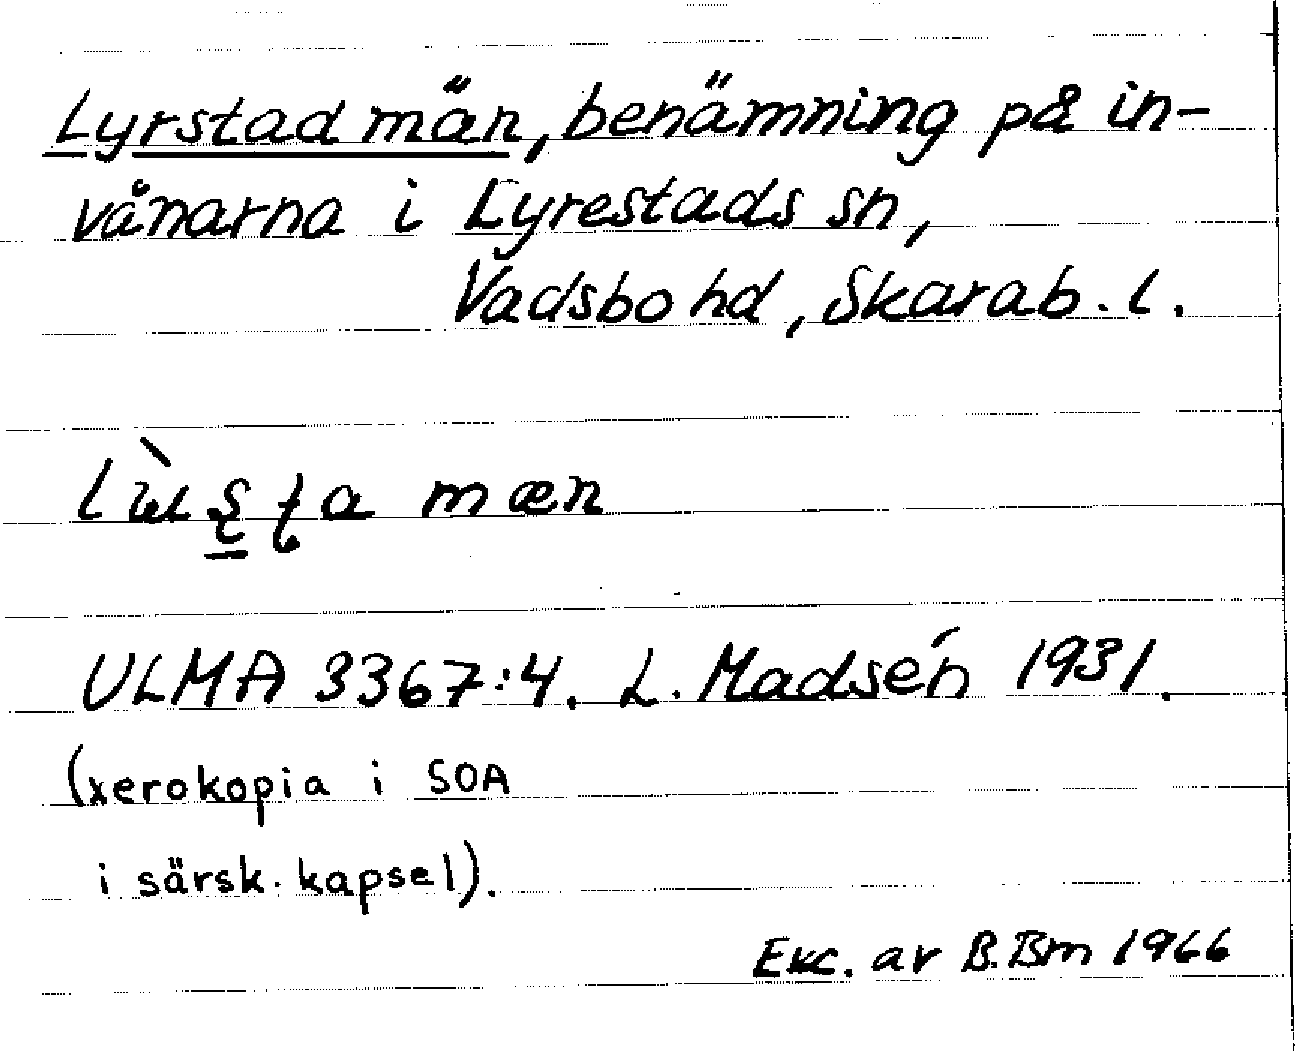 Lyrstad män, benämning på in-
vånarna i Lyrestads sn,
Vadsbo hd, Skarab. l.
mæn
ULMA 3367:4. L. Madsén 1931.
(xerokopia i SOA
i särsk. kapsel).
Exc. av B. Bm 1966